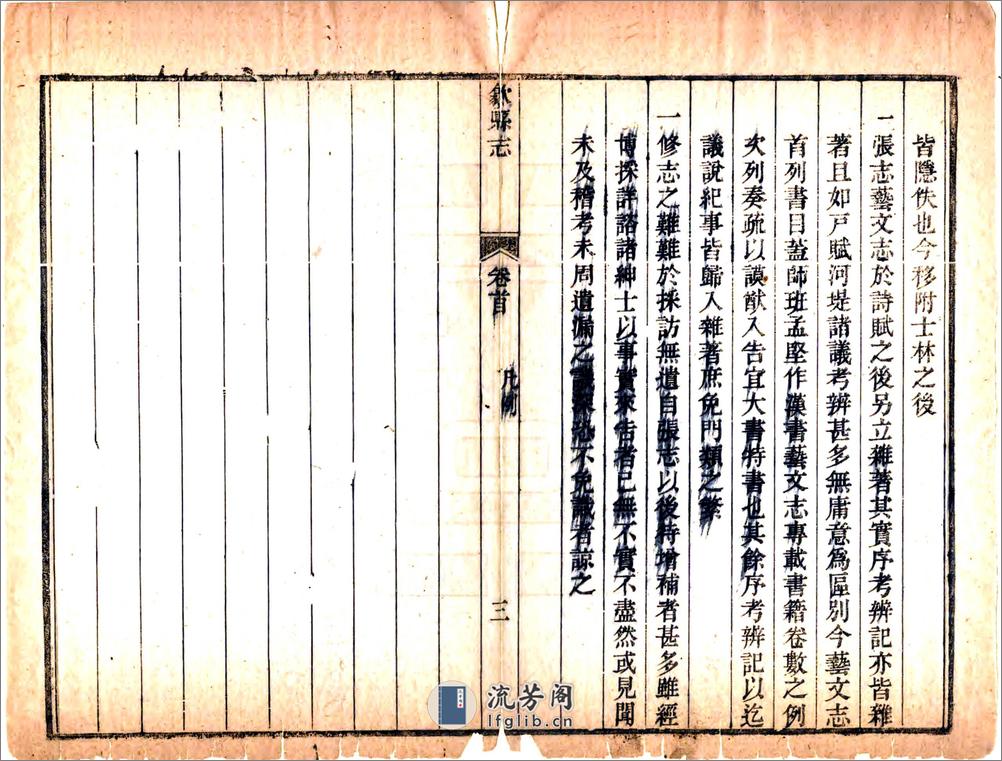 皆隱佚也今移附士林之後
一張志藝文志於詩賦之後另立雜著其實序考辨記亦皆雜
著且如戸賦河堤諸議考辨甚多無庸意爲區別今藝文志
首列書目蓋師班孟堅作漢書藝文志專載書籍卷數之例
次列奏疏以謨猷入告宜大書特書也其餘序考辨記以迄
議說紀事皆歸入雜著庶免門類之繁
一修志之難難於採訪無遺自張志以後特增補者甚多雖經
博採詳諮諸紳士以事實來告者已無不實不盡然或見聞
未及稽考未周遺漏之譏深恐不免識者諒之
歙縣志
卷首
凡例
三
流芳阁
lfglib.cn